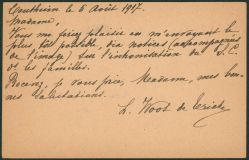 le 6 Août 1917.
Madame,
Vous me ferez plaisir en m'envoyant le
plus tôt possible, dix notices (accompagnées
de l'image) sur l'intronisation du S. C.
ds les familles.
Recevez, je vous prie, Madame, mes bonnes
salutations.
L. de